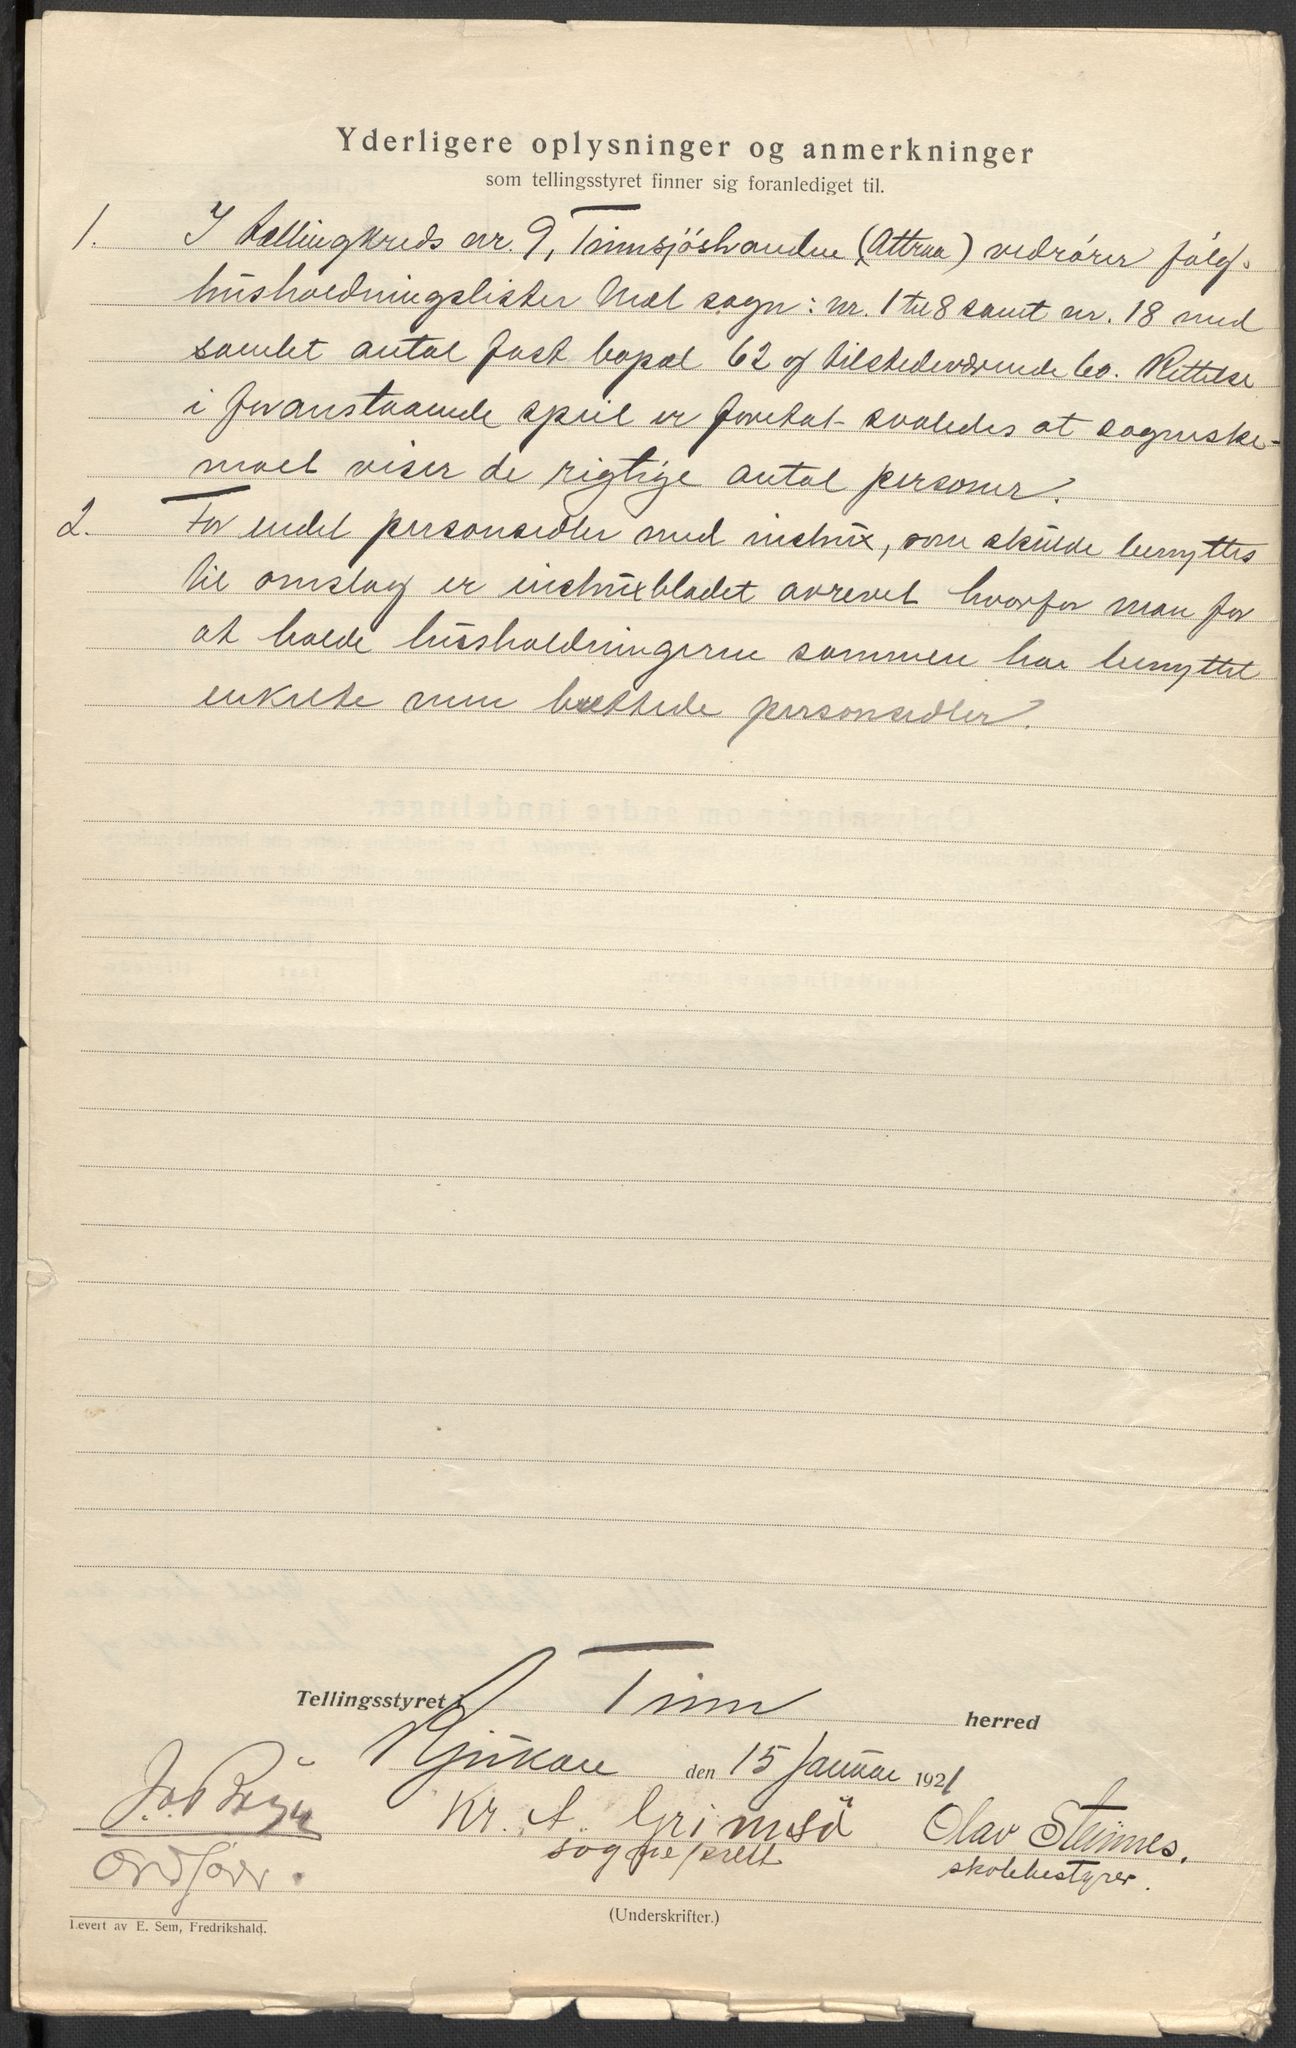 Yderligere oplysninger og anmerkninger
som tellingsstyret finner sig foranlediget til.
1. I tællingkreds nr. 9, Tinnsjøstranden (Attraa) vedrører følg.
husholdningslister Mæl sogn: nr. 1 til 8 samt nr. 18 med
samlet antal fast bopæl 62 og tilstedeværende 60. Rettelse
i foranstaaende speil er foretat saaledes at sogneske-
maet viser de rigtige antal personer.
2. For endel personsedler med instrux, som skulde benyttes
til omslag er instruxbladet avrevet hvorfor man for
at holde husholdningerne sammen har benyttet
enkelte personsedler.
Tellingsstyret i Tinn herred
Rjukan den 15 Januar 1921
Kr. A. Grimsø Olav Steinnes.
ordfører. sogneprest skolebestyrer.
(Underskrifter.)
Levert av E. Sem, Fredrikshald.